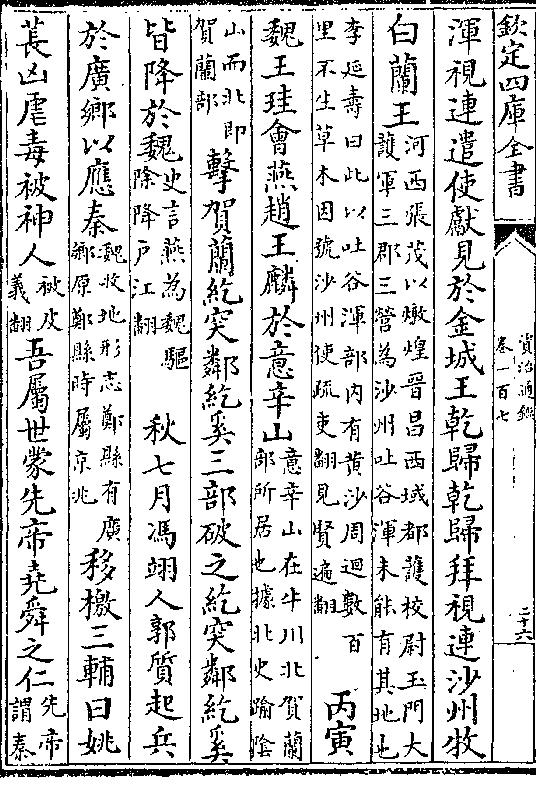 欽定四庫全書
資治通鑑
卷一百七
二十六
渾視連遣使獻見於金城王乾歸乾歸拜視連沙州牧
白蘭王
河西張茂以燉煌晉昌西域都護校尉玉門大
護軍三郡三營為沙州吐谷渾未能有其地也
李延壽曰此以吐谷渾部内有黄沙周迴數百
里不生草木因號沙州使疏吏翻見賢遍翻
丙寅
魏王珪會燕趙王麟於意辛山
意辛山在牛川北賀蘭
部所居也據北史踰陰
山而北即
賀蘭部
擊賀蘭紇突鄰紇奚三部破之紇突鄰紇奚
皆降於魏
史言燕為魏驅
除降户江翻
秋七月馮翊人郭質起兵
於廣鄉以應秦
魏收地形志鄭縣有廣
鄉原鄭縣時屬京兆
移檄三輔曰姚
萇凶虐毒被神人
被皮
義翻
吾屬世蒙先帝堯舜之仁
先帝
謂秦